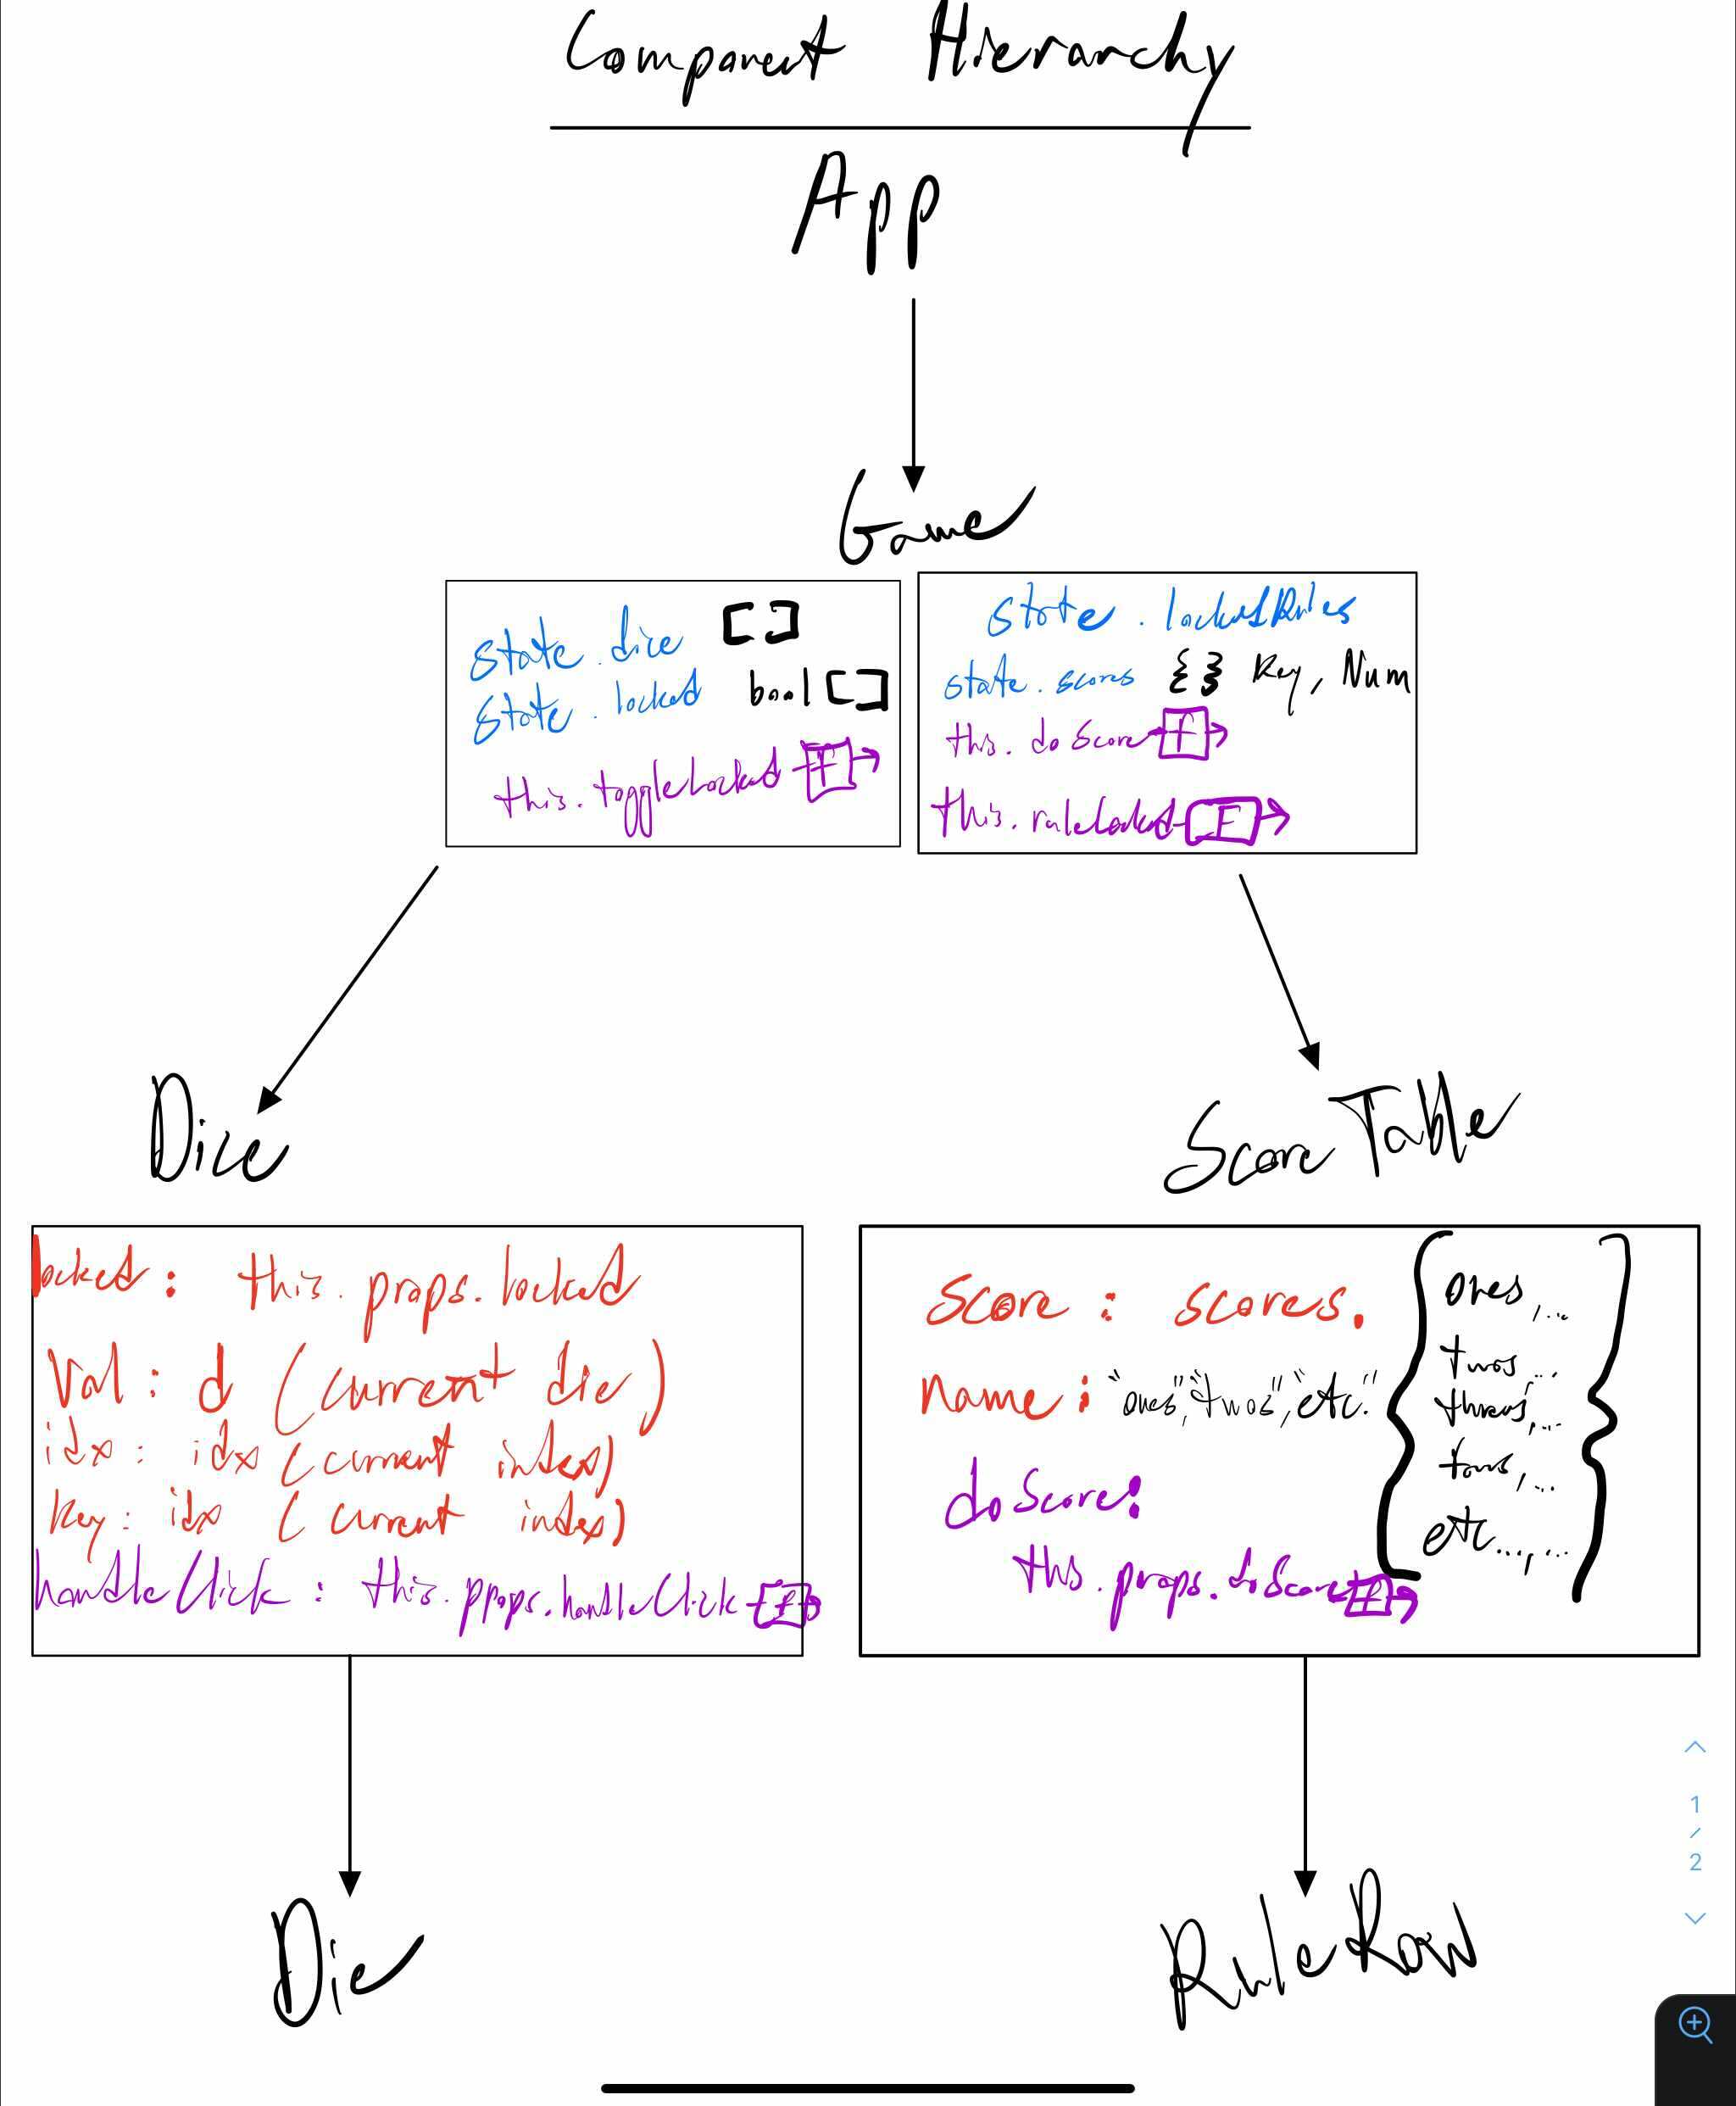 Component Hierarchy
App
Game
state.dice []
state.locked bool []
this.toggleLocked F
state.lockedRules
state.scores {} Key, Num
this.doScore F
this.ruleLocked F
Dice
locked: this.props.locked
Val: d (current die)
idx: idx (current index)
key: idx (current index)
handleClick: this.props.handleClick F
Score Table
Score: scores. { ones,...
twos...
threes,...
fours,...
etc...,... }
name: "ones","twos","etc."
doScore:
this.props.doScore F
Die
RuleRow
1
/
2